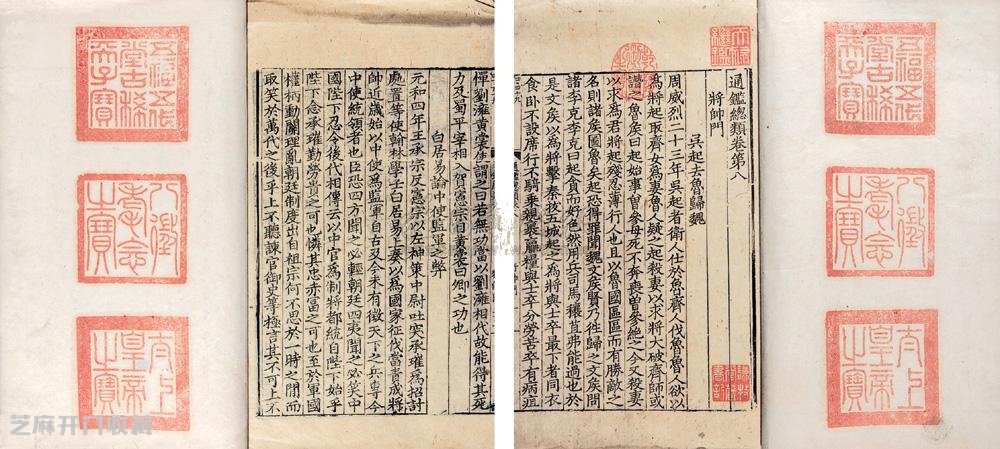 五福五代堂古稀天子寶
八徵耄念之寶
太上皇帝之寶
天祿繼鑑
通鑑總類卷第八
將帥門
吳起去魯歸魏
周威烈二十三年吳起者衛人仕於魯齊人伐魯魯人欲以
為將起取齊女為妻魯人疑之起殺妻以求將大破齊師或
譖之魯矦曰起始事曾參母死不奔喪曾參絕之今又殺妻
以求為君將起殘忍薄行人也且以魯國區區而有勝敵之
名則諸矦圖魯矣起恐得罪聞魏文矦賢乃往歸之文矦問
諸李克李克曰起貪而好色然用兵司馬穰苴弗能過也於
是文矦以為將擊秦拔五城起之為將與士卒最下者同衣
食卧不設席行不騎乗親裹羸糧與士卒分勞苦卒有病疽
憚劉澭黃裳使謂之曰若無功當以劉澭相代故能得其死
力及蜀平宰相入賀憲宗目黃裳曰卿之功也
白居易論中使監軍之弊
元和四年王承宗反憲宗以左神策中尉吐突承璀為招討
處置等使翰林學士白居易上奏以為國家征伐當責成將
帥近歲始以中使為監軍自古及今未有徵天下之兵專令
中使統領者也臣恐四方聞之必輕朝廷四夷聞之必笑中
國陛下忍令後代相傳云以中官為制將都統自陛下始乎
陛下念承璀勤勞貴之可也憐其忠赤富之可也至於軍國
權柄動關理亂朝廷制度出自祖宗何不思於一時之間而
取笑於萬代之後乎上不聽諫官御史等極言其不可上不
五福五代堂古稀天子寶
八徵耄念之寶
太上皇帝之寶
芝麻开门收藏